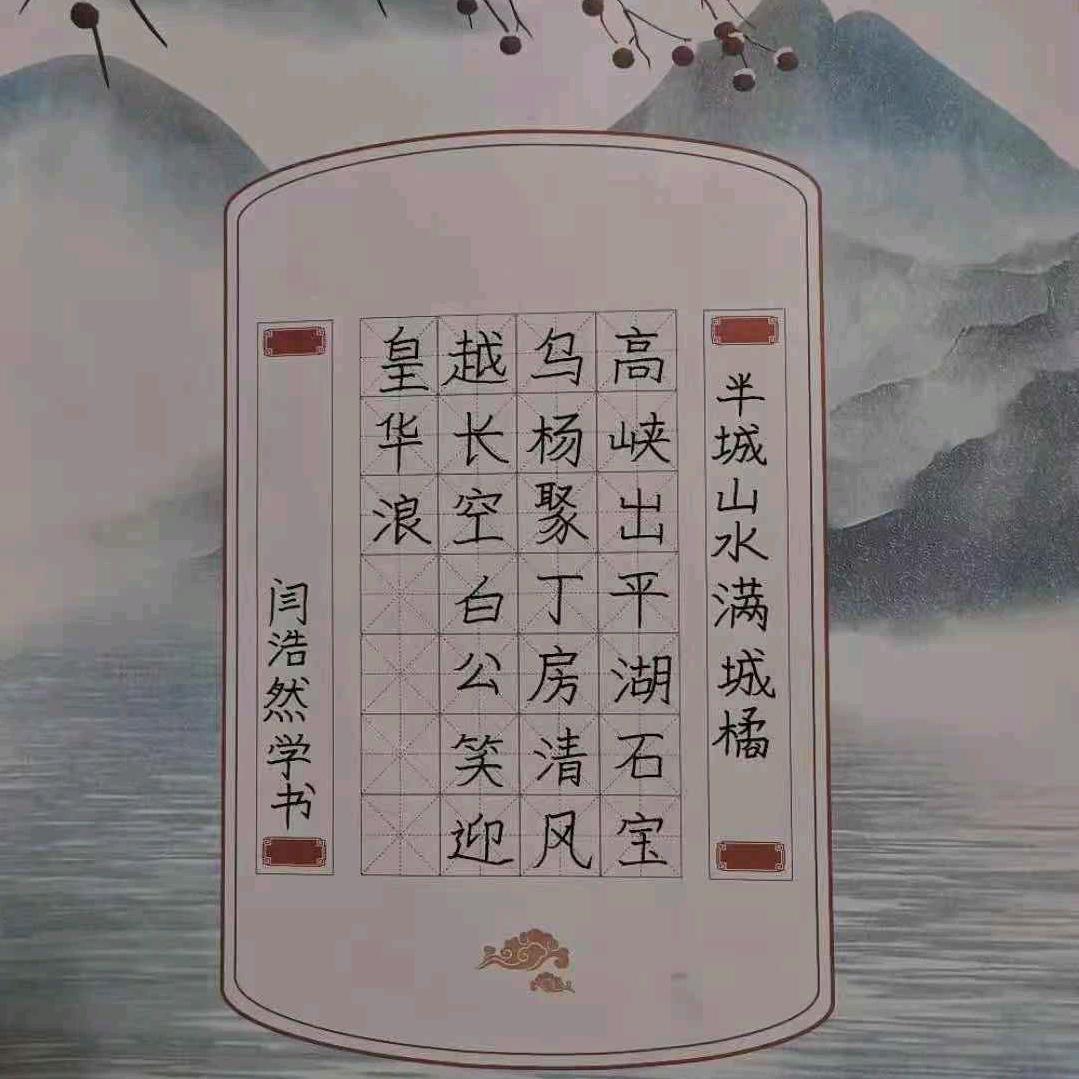 半城山水满城橘
高峡出平湖石宝
乌杨聚丁房清风
越长空白公笑迎
皇华浪
闫浩然学书